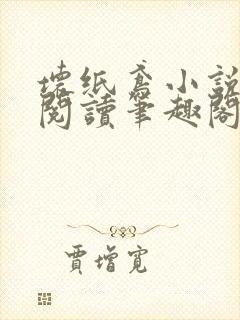 壞紙鳶小說
閱讀筆趣閣
賈增寬